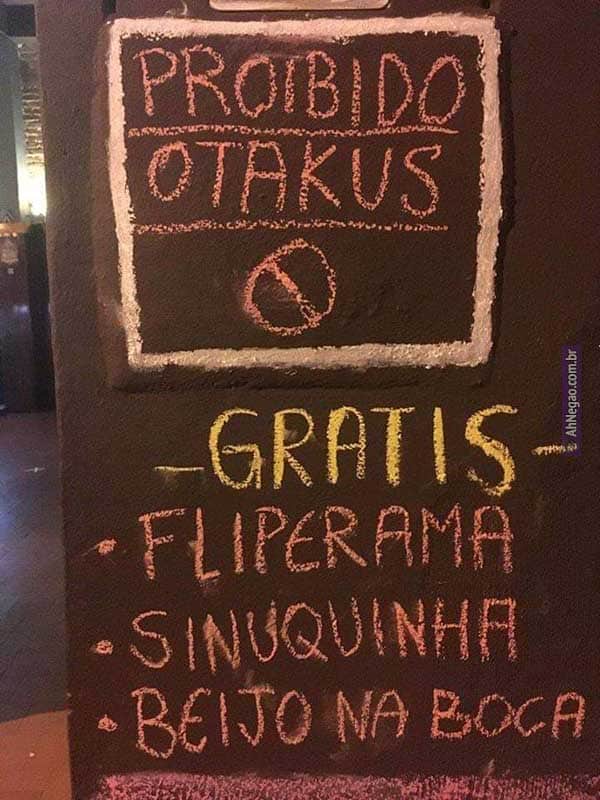 PROIBIDO
OTAKUS
-GRATIS-
• FLIPERAMA
• SINUQUINHA
• BEIJO NA BOCA
AhNegao.com.br